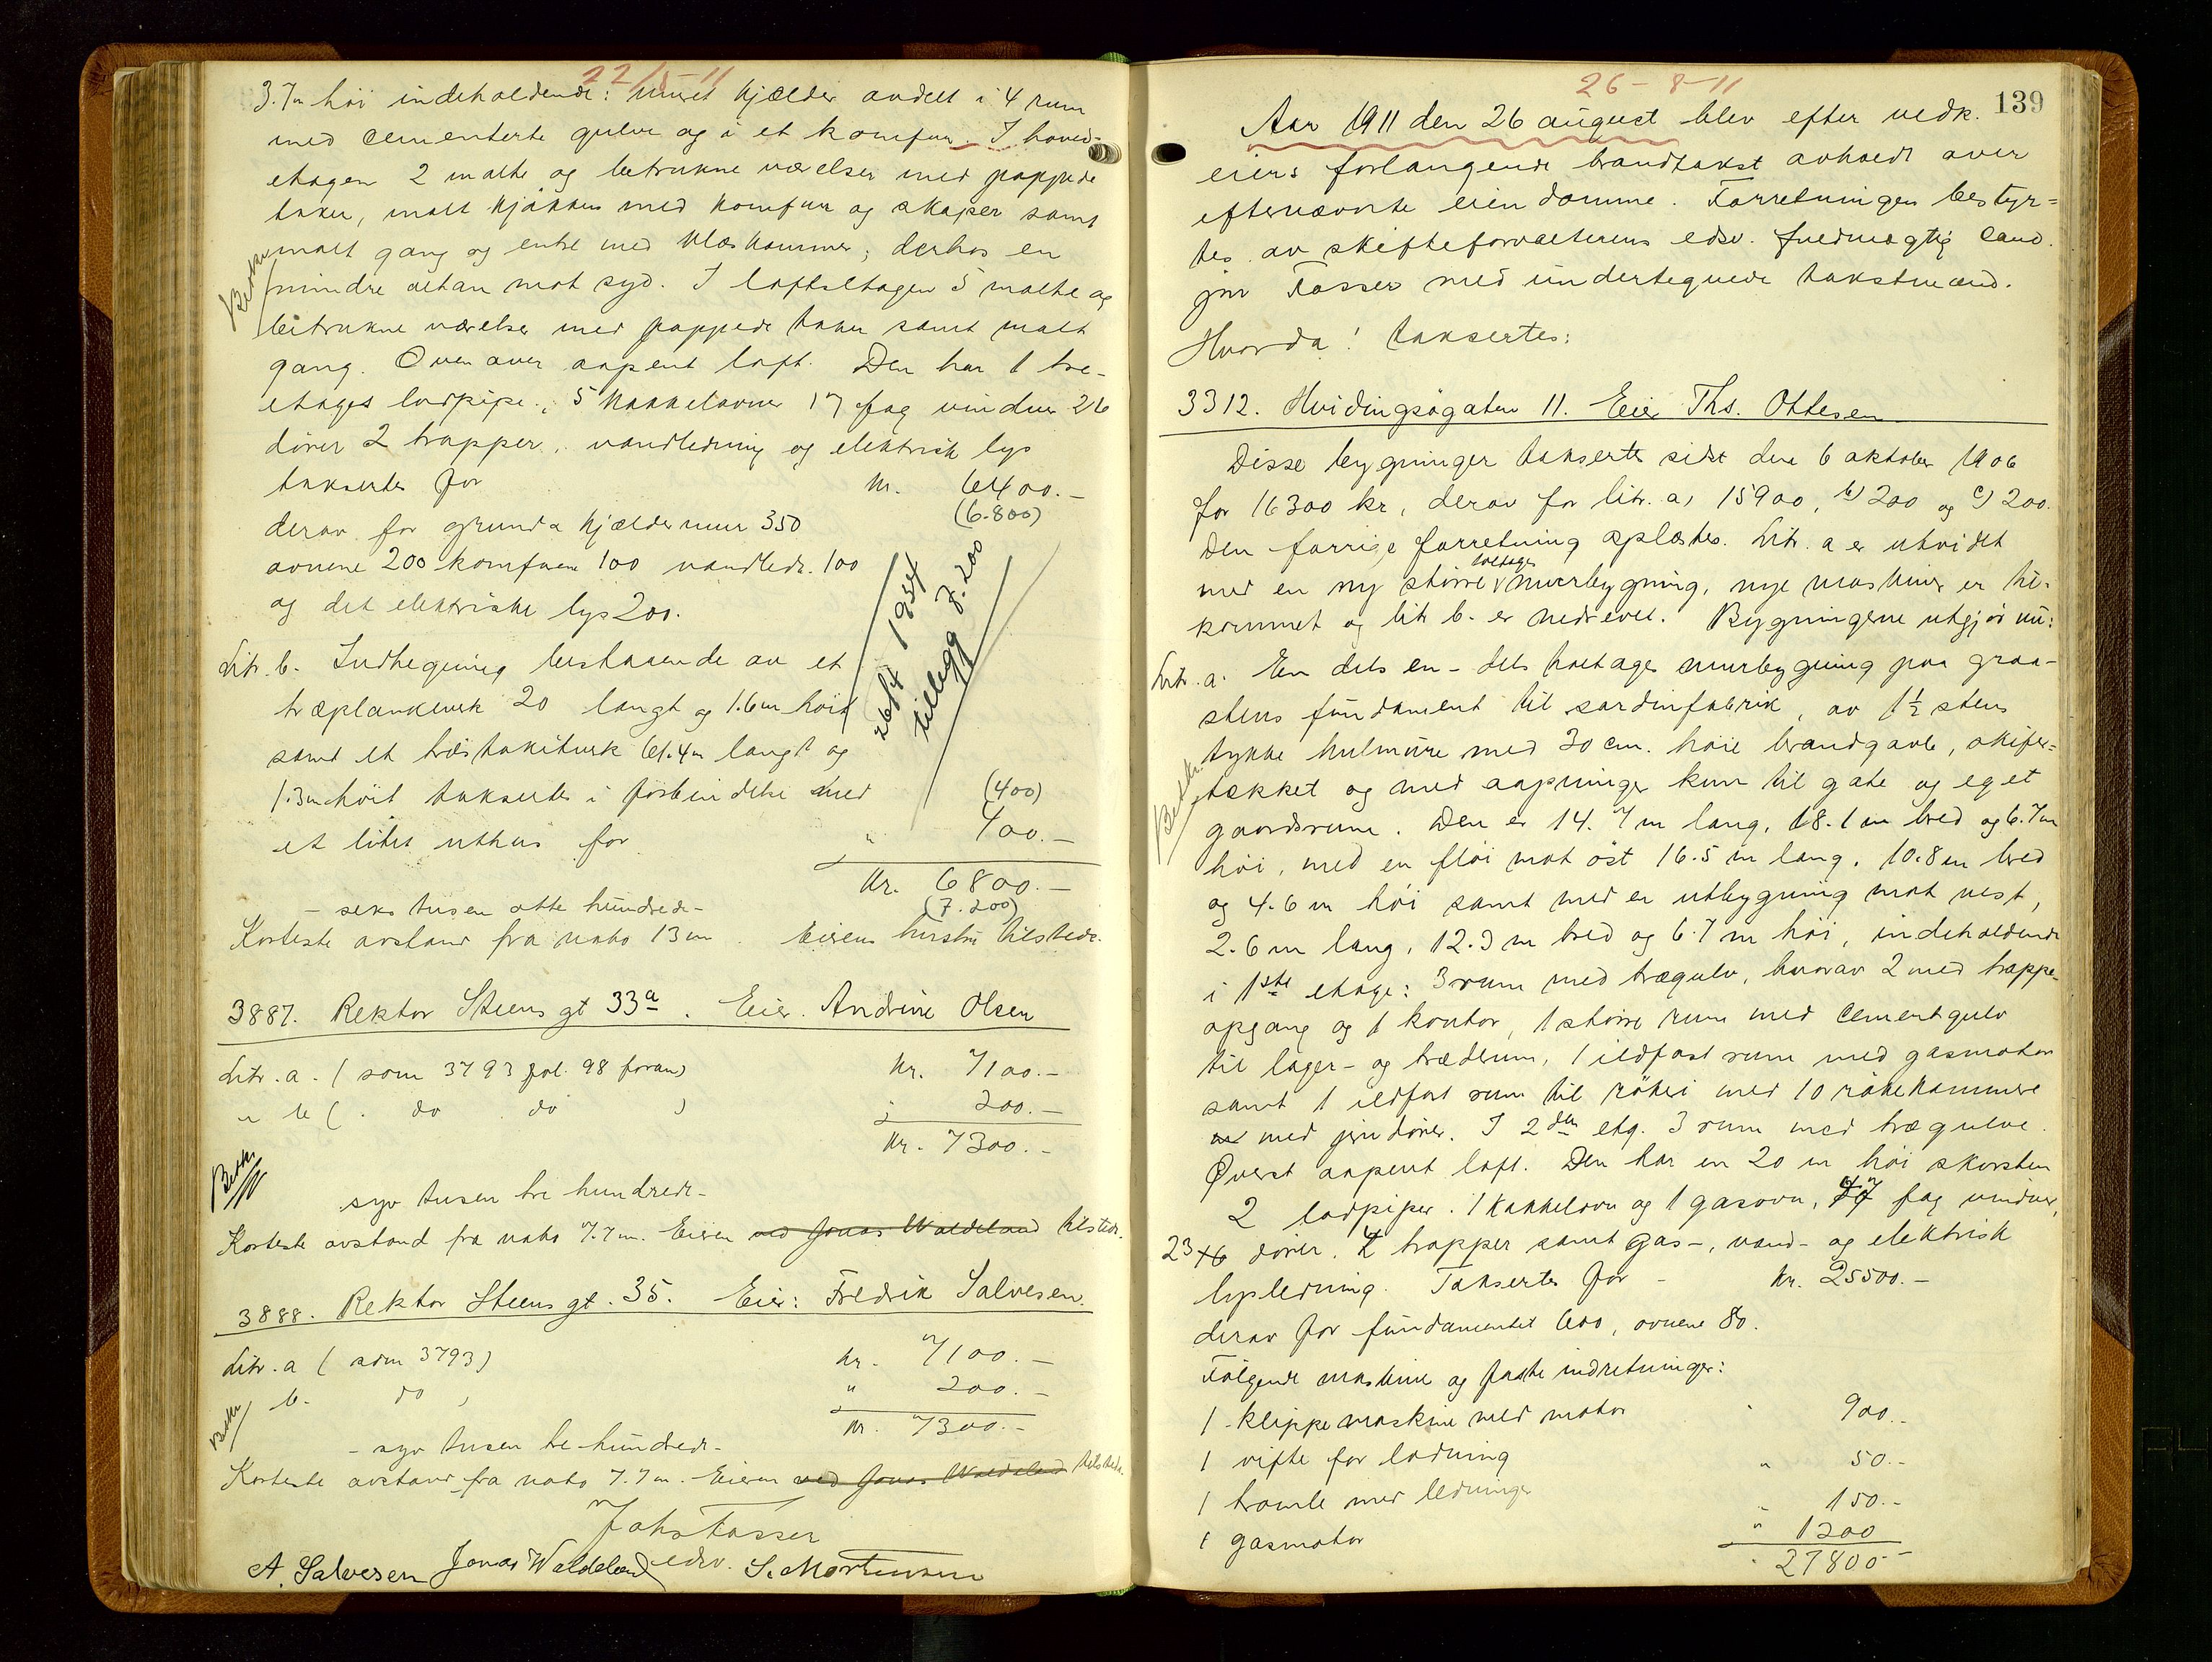 22/8-11
3.7m høi indeholdende: muret kjælder avdelt i 4 rum
med cementerte gulve og i et komfur. I hoved-
etagen 2 malte og betrukne værelser med pappede
taker, malt kjøkken med komfur og skaper samt
malt gang og entre med klæskammer; derhos en
mindre altan mot syd. I loftsetagen 5 malte og
betrukne værelser med pappede taker samt malt
gang. Oven over aapent loft. Den har 1 tre-
etages lodpipe, 5 kakkelovner 17 fag vinduer 26
dører 2 trapper, vandledning og elektrisk lys
taksertes for kr. 6400.-
(6.800)
derav for grund & kjældermur 350
ovnene 200 komfuren 100 vandledn. 100
og det elektriske lys 200.
26/4 1934
tillegg 7.200
Litr. b. Indhegning bestaaende av et
træplankeverk 20 langt og 1.6m høit
samt et træstakitverk 61.4m langt og
1.3m høit taksertes i forbindelse med (400)
et litet uthus for " 400.-
Kr. 6800.-
- seks tusen otte hundrede - (7.200)
Korteste avstand fra nabo 13m. Eierens hustru tilstede.
3887. Rektor Steens gt 33a. Eier. Andrine Olsen
Litr. a. (som 3793 fol. 98 foran) kr. 7100.-
" b ( do do ) " 200.-
Kr. 7300.-
syv tusen tre hundrede-
Korteste avstand fra nabo 7.7m. Eieren ved Jonas Waldeland tilstede.
3888. Rektor Steens gt. 35. Eier: Fredrik Salvesen.
Litr. a (som 3793) kr. 7100.-
b. do " 200.-
Kr. 7300.-
- syv tusen tre hundrede-
Korteste avstand fra nabo 7.7m. Eieren ved Jonas Waldeland tilstede.
Johs Fasser
edsv.
A. Salvesen Jonas Waldeland S. Mortensen
26-8-11
139
Aar 1911 den 26 august blev efter vedk.
eiers forlangende brandtakst avholdt over
efternævnte eiendomme. Forretningen bestyr-
tes av skifteforvalterens edsv. fuldmægtig cand.
jur Fasser med undertegnede takstmænd.
Hvorda! taksertes:
3312. Hvidingsøgaten 11. Eier Ths. Ottesen
Disse bygninger taksertes sidst den 6 oktober 1906
for 16300 kr, derav for litr. a) 15900, b) 200 og c) 200.
Den forrige forretning oplæstes. Litr. a er utvidet
med en ny større toetages murbygning, nye maskiner er til-
kommet og litr b. er nedrevet. Bygningerne utgjør nu:
Litr. a. En dels en- dels toetages murbygning paa graa-
stens fundament til sardinfabrik, av 1½ stens
tykke hulmure med 30 cm. høie brandgavle, skifer-
tækket og med aapninger kun til gate og eget
gaardsrum. Den er 14.7m lang, 18.1m bred og 6.7m
høi, med en fløi mot øst 16.5 m lang, 10.8m bred
og 4.6 m høi samt med en utbygning mot vest,
2.6m lang, 12.3m bred og 6.7m høi, indeholdende
i 1ste etage: 3 rum med trægulv, hvorav 2 med trappe-
opgang og 1 kontor, 1 større rum med cementgulv
til lager- og træderum, 1 ildfast rum med gasmotor
samt 1 ildfast rum til røkeri med 10 røkekammere
med jerndører. I 2den etg. 3 rum med trægulve.
Øverst aapent loft. Den har en 20 m høi skorsten
2 lodpiper. 1 kakkelovn og 1 gasovn, fag vinduer,
23 dører. 2 trapper samt gas-, vand- og elektrisk
lysledning. Taksertes for - kr. 25500.-
derav for fundamentet 600, ovnene 80.
Følgende maskine og faste indretninger:
1 klippemaskine med motor " 900.-
1 vifte for lodning " 50.-
1 tromle med ledninger " 150.-
1 gasmotor " 1200
" 27800-